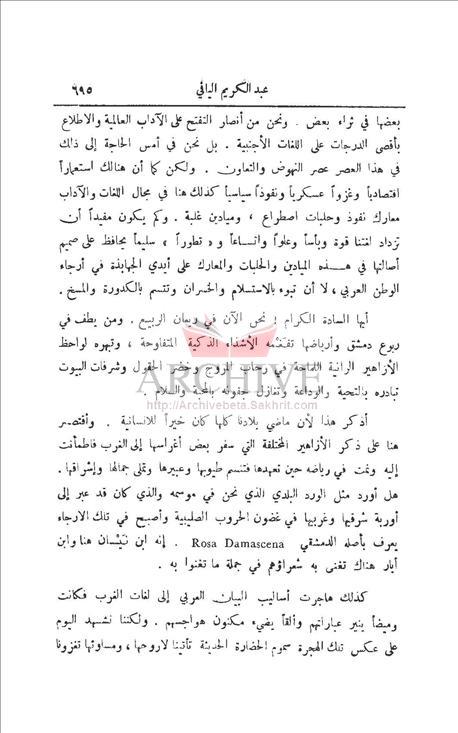 عبد الكريم اليافي ٦٩٥
بعضها في ثراء بعض . ونحن من أنصار التفتح على الآداب العالمية والاطلاع
بأقصى الدرجات على اللغات الأجنبية . بل نحن في أمس الحاجة إلى ذلك
في هذا العصر عصر النهوض والتعاون . ولكن كما أن هنالك استعماراً
اقتصادياً وغزواً عسكرياً ونفوذاً سياسياً كذلك هنا في مجال اللغات والآداب
معارك نفوذ وحلبات اصطراع ، وميادين غلبة . وكم يكون مفيداً أن
تزداد لغتنا قوة وبأساً وعلواً واتساعاً و « تطوراً » سليماً يحافظ على صميم
أصالتها في هذه الميادين والحلبات والمعارك على أيدي الجهابذة في أرجاء
الوطن العربي ، لا أن تبوء بالاستسلام والخسران وتتسم بالكدورة والمسخ .
أيها السادة الكرام ! نحن الآن في ريعان الربيع . ومن يطف في
ربوع دمشق وأرباضها تفغمه الأشذاء الذكية المتفاوحة ، وتبهره لواحظ
الأزاهير الرانية اللماحة في رحاب المروج وخضر الحقول وشرفات البيوت
تبادره بالتحية والوداعة وتغازل جفونه بالمحبة والسلام .
ARCHIVE
http://Archivebeta.Sakhrit.com
أذكر هذا لأن ماضي بلادنا كلها كان خيراً للانسانية . وأقتصر
هنا على ذكر الأزاهير المختلفة التي سفر بعض أغراسها إلى الغرب فاطمأنت
إليه ونمت في رياضه حين تعهدها فتنسم طيوبها وعبيرها وتملى جمالها وإشراقها .
هل أورد مثل الورد البلدي الذي نحن في موسمه والذي كان قد عبر إلى
أوربة شرقيها وغربيها في غضون الحروب الصليبية وأصبح في تلك الارجاء
يعرف بأصله الدمشقي Rosa Damascena . إنه ابن نيسان هنا وابن
أيار هناك تغنى به شعراؤهم في جملة ما تغنوا به .
كذلك هاجرت أساليب البيان العربي إلى لغات الغرب فكانت
وميضاً ينير عباراتهم وألقاً يضيء مكنون هواجسهم . ولكننا نشهد اليوم
على عكس تلك الهجرة سموم الحضارة الحديثة تأتينا لاروحها ، ومساوئها تغزونا